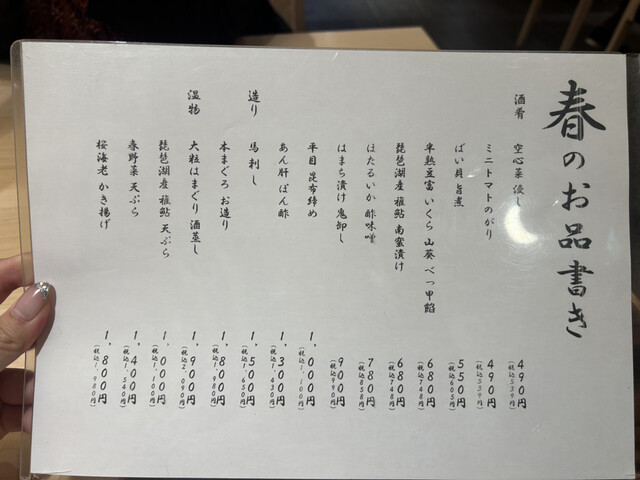 春のお品書き
酒肴 空心菜 浸し 490円(税込539円)
ミニトマトのがり 490円(税込539円)
ばい貝 旨煮 550円(税込605円)
半熟豆富 いくら 山葵 べっ甲餡 680円(税込748円)
琵琶湖産 稚鮎 南蛮漬け 680円(税込748円)
ほたるいか 酢味噌 780円(税込858円)
はまち漬け 鬼卸し 900円(税込990円)
平目 昆布締め 1,000円(税込1,100円)
あん肝 ぽん酢 1,300円(税込1,430円)
造り 馬刺し 1,500円(税込1,650円)
本まぐろ お造り 1,800円(税込1,980円)
温物 大粒はまぐり 酒蒸し 1,900円(税込2,090円)
琵琶湖産 稚鮎 天ぷら 1,000円(税込1,100円)
春野菜 天ぷら 1,400円(税込1,540円)
桜海老 かき揚げ 1,800円(税込1,980円)